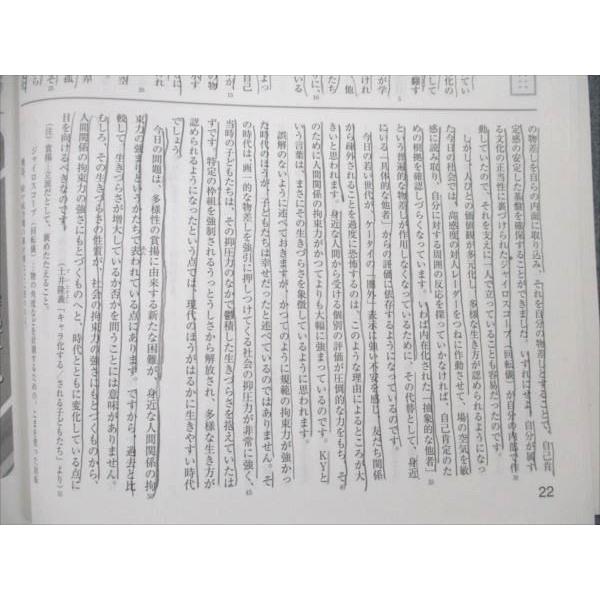 の物差しを自らの内面に取り込み、それを自分の物差しとすることで、自己肯
定感の安定した基盤を確保することができました。いずれにせよ、自分が属す
文化の正当性に裏づけられたジャイロスコープ(回転儀)が自分の内部で作
動していたので、それを支えに一人で立っていることも容易だったのです。
しかし、人びとの価値観が多元化し、多様な生き方が認められるようになっ
た今日の社会では、高感度の対人レーダーをつねに作動させて、場の空気を敏
感に読み取り、自分に対する周囲の反応を探っていかなければ、自己肯定のた
めの根拠を確認しづらくなっています。いわば内在化された「抽象的な他者」
という普遍的な物差しが作用しなくなっているために、その代替として、身近
にいる「具体的な他者」からの評価に依存するようになっているのです。
今日の若い世代が、ケータイの「圏外」表示に強い不安を感じ、友だち関係
から疎外されることを過度に恐怖するのは、このような理由によるところが大
きいと思われます。身近な人間から受ける個別の評価が圧倒的な力をもち、そ
のために人間関係の拘束力がかつてよりも大幅に強まっているのです。KYと
いう言葉は、まさにその生きづらさを象徴しているように思われます。
誤解のないように述べておきますが、かつてのように規範の拘束力が強かっ
た時代のほうが、子どもたちは幸せだったと述べているのではありません。そ
の時代は、画一的な物差しを強引に押しつけてくる社会の抑圧力が非常に強く、
当時の子どもたちは、その抑圧力のなかで鬱積した生きづらさを抱えていたは
ずです。特定の枠組を強制されるうっとうしさから解放され、多様な生き方が
認められるようになったという点では、現代のほうがはるかに生きやすい時代
でしょう。
今日の問題は、多様性の賞揚に由来する新たな困難が、身近な人間関係の拘
束力の強まりというかたちで表われている点にあります。ですから、過去と比
較して、生きづらさが増大しているか否かを問うことには意味がありません。
むしろ、その生きづらさの性質が、社会の拘束力の強さにもとづくものから、
人間関係の拘束力の強さにもとづくものへと、時代とともに変化している点に
目を向けるべきなのです。
(土井隆義「キャラ化する/される子どもたち」より)
(注) 賞揚=立派だとして、褒めたたえること。
ジャイロスコープ(回転儀)=物の角度などを計測するための、こまを使った装置
22